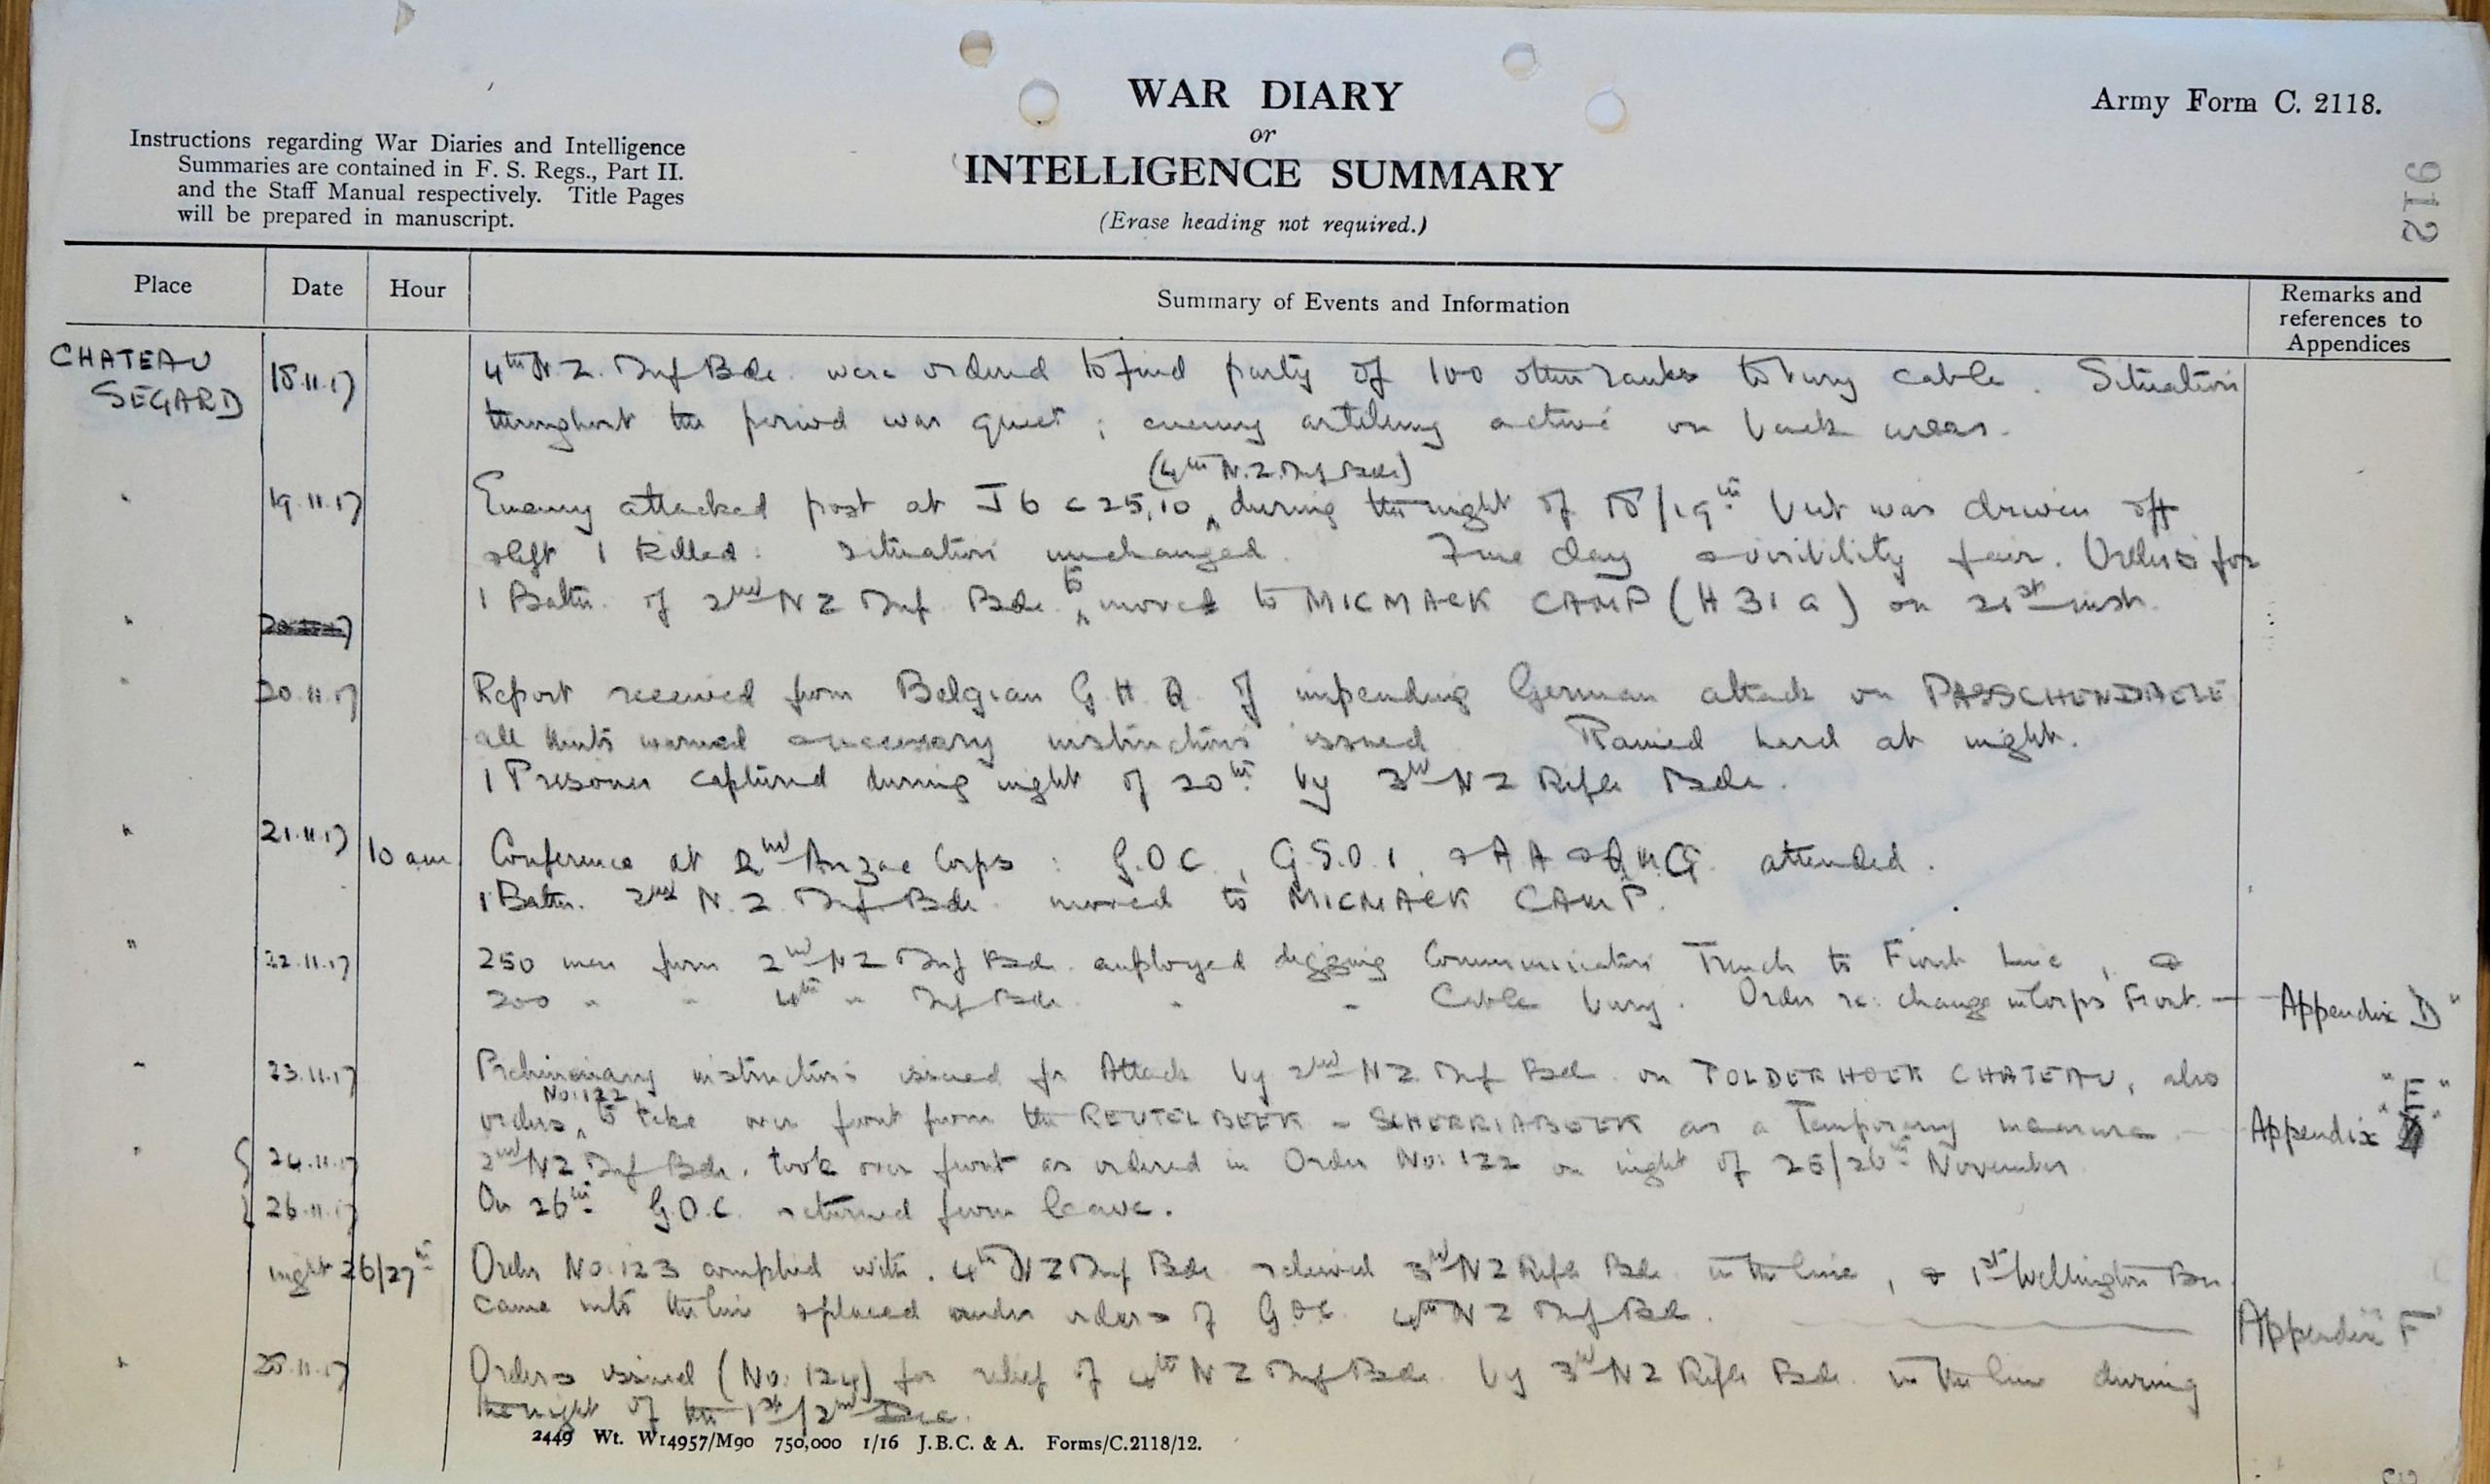 WAR DIARY
or
INTELLIGENCE SUMMARY
(Erase heading not required.)
Army Form C. 2118.
912
Instructions regarding War Diaries and Intelligence
Summaries are contained in F. S. Regs., Part II.
and the Staff Manual respectively. Title Pages
will be prepared in manuscript.
Place Date Hour Summary of Events and Information Remarks and references to Appendices
CHATEAU SEGARD 18.11.17 4th N.Z. Inf Bde. were ordered to find party of 100 other ranks to bury cable. Situation
throughout the period was quiet; enemy artillery active on back areas.
(4th N.Z. Inf Bde)
" 19.11.17 Enemy attacked post at J 6 c 25,10 during the night of 18/19th but was driven off
& left 1 killed: situation unchanged. Fine day & visibility fair. Orders for
1 Battn. of 2nd N Z Inf Bde. to moved to MICMACK CAMP (H 31 a) on 21st inst.
"
" 20.11.17 Report received from Belgian G.H.Q. of impending German attack on PASSCHENDAELE
all Units warned & necessary instructions issued. Rained hard at night.
1 Prisoner captured during night of 20th by 3rd N Z Rifle Bde.
" 21.11.17 10 am Conference at 2nd Anzac Corps: G.O.C., G.S.O.1, & A A & Q M G. attended.
1 Battn. 2nd N.Z. Inf Bde. moved to MICMACK CAMP.
" 22.11.17 250 men from 2nd N Z Inf Bde. employed digging Communication Trench to Front Line, &
200 " " 4th " Inf Bde. " " Cable bury. Order re: change in Corps Front. — Appendix D"
" 23.11.17 Preliminary instructions issued for Attack by 2nd N Z Inf Bde. on POLDERHOEK CHATEAU, also
orders No: 122 to take over front from the REUTELBEEK - SCHERRIABEEK as a Temporary measure — Appendix "E"
" 24.11.17 2nd N Z Inf Bde. took over front as ordered in Order No: 122 on night of 25/26th November
26.11.17 On 26th G.O.C. returned from leave.
night 26/27th Order No: 123 complied with. 4th N Z Inf Bde relieved 3rd N Z Rifle Bde in the line, & 1st Wellington Bn
came into the line & placed under orders of G.O.C. 4th N Z Inf Bd. Appendix "F"
" 28.11.17 Orders issued (No: 124) for relief of 4th N Z Inf Bde. by 3rd N Z Rifle Bde. in the line during
the night of the 1st/2nd Dec.
2449 Wt. W14957/M90 750,000 1/16 J.B.C. & A. Forms/C.2118/12.